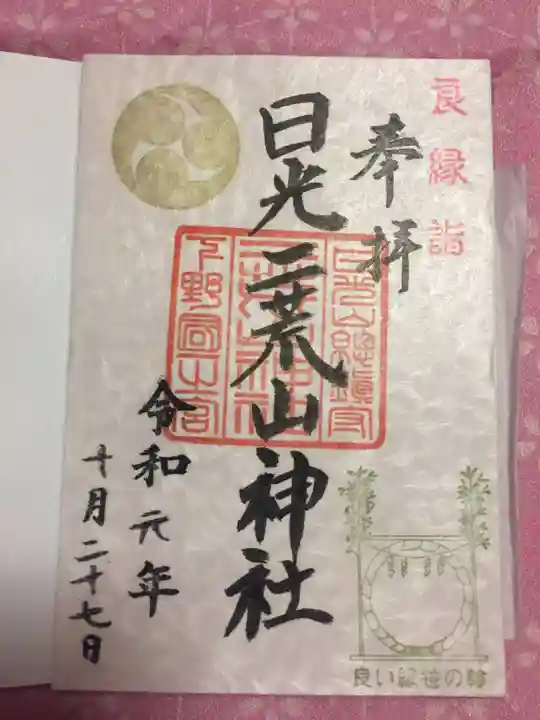 良縁詣
奉拝
日光二荒山神社
令和元年
十月二十七日
日光山総鎮守
二荒山神社
下野国一之宮
良い縁笹の輪